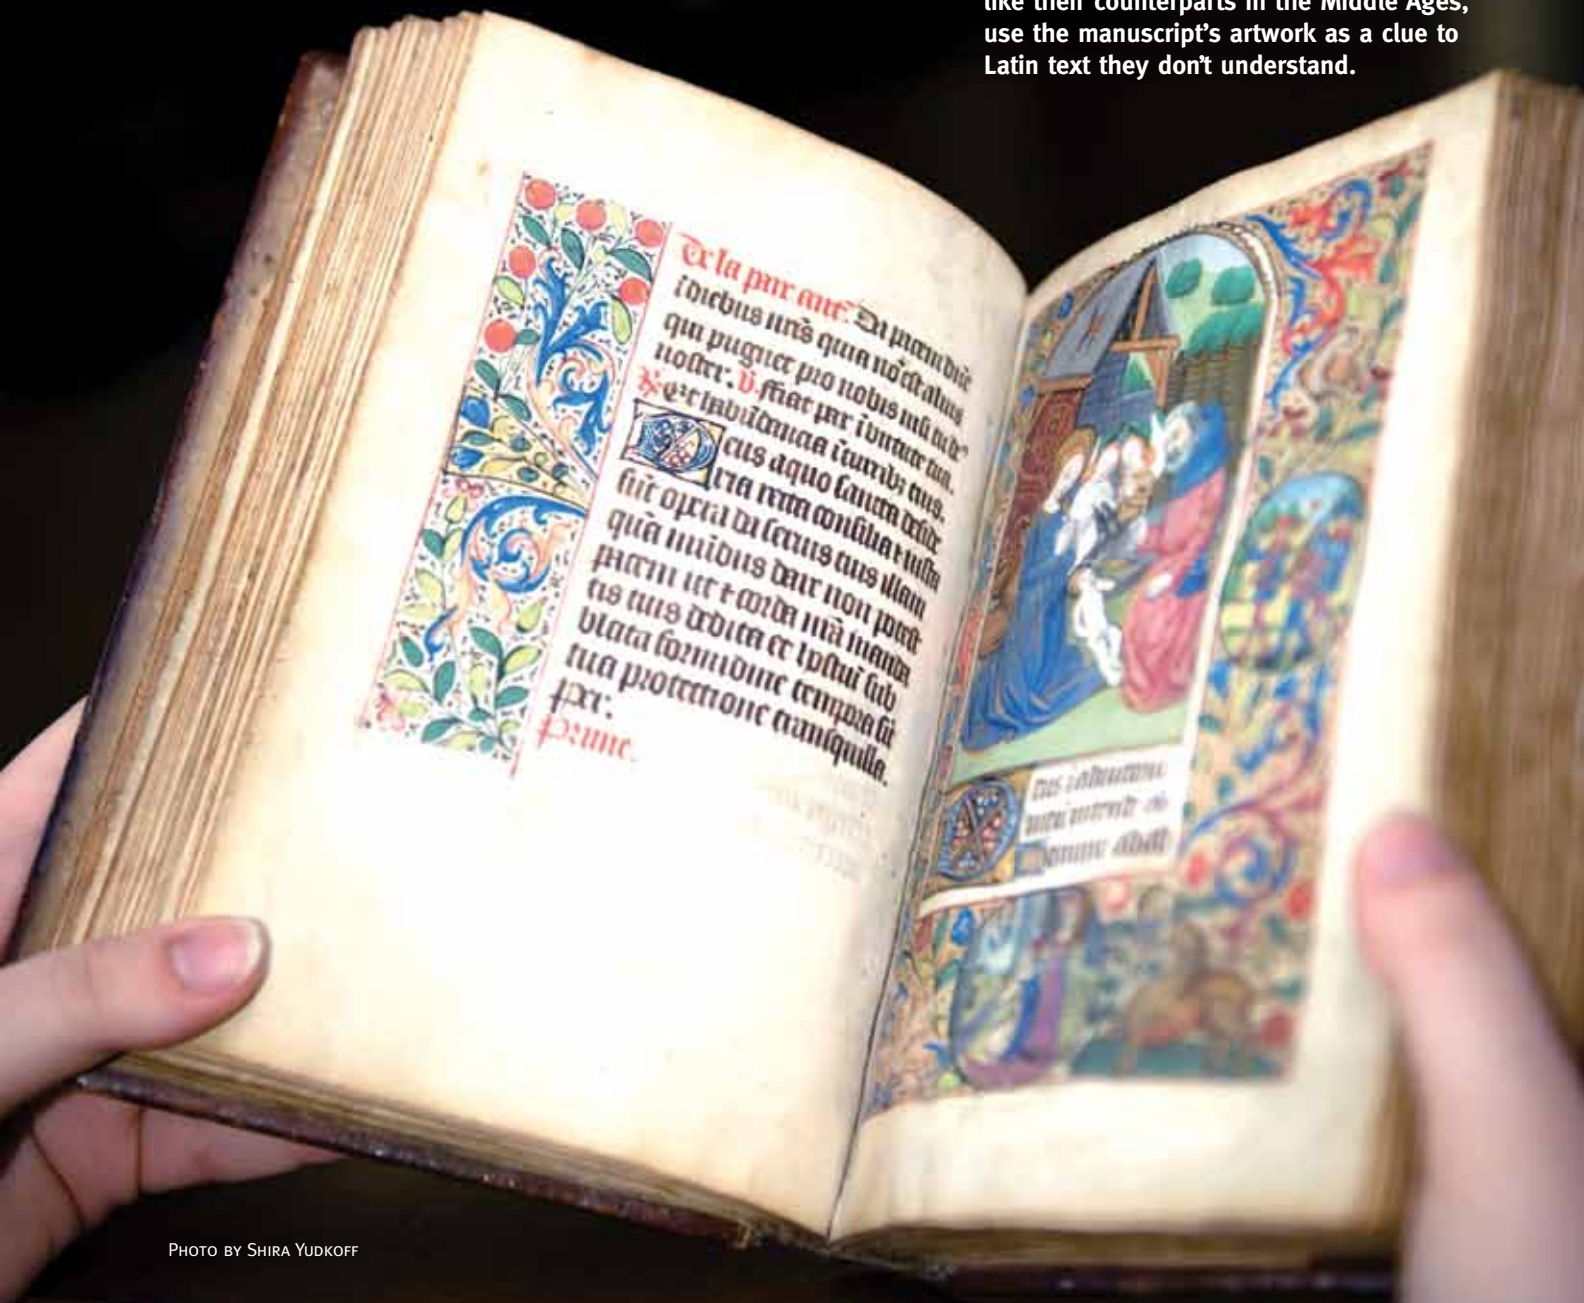 like their counterparts in the Middle Ages,
use the manuscript's artwork as a clue to
Latin text they don't understand.
De la paix ant. Da pacem dñe
i diebus nr̃s quia nõ est alius
qui pugnet pro nobis nisi tu deꝰ
noster. V. ffiat pax ĩ virtute tua.
R. et habũdancia ĩ turribꝫ tuis.
Deus a quo sancta deside
ria recta consilia ⁊ iusta
sũt opera da servis tuis illam
quã mũdus dare non potest
pacem ut ⁊ corda nr̃a manda
tis tuis dedita et hostiũ sub
lata formidine tempora sĩt
tua protectione tranquilla.
Per.
Prime.
meũ intende
Domine
PHOTO BY SHIRA YUDKOFF